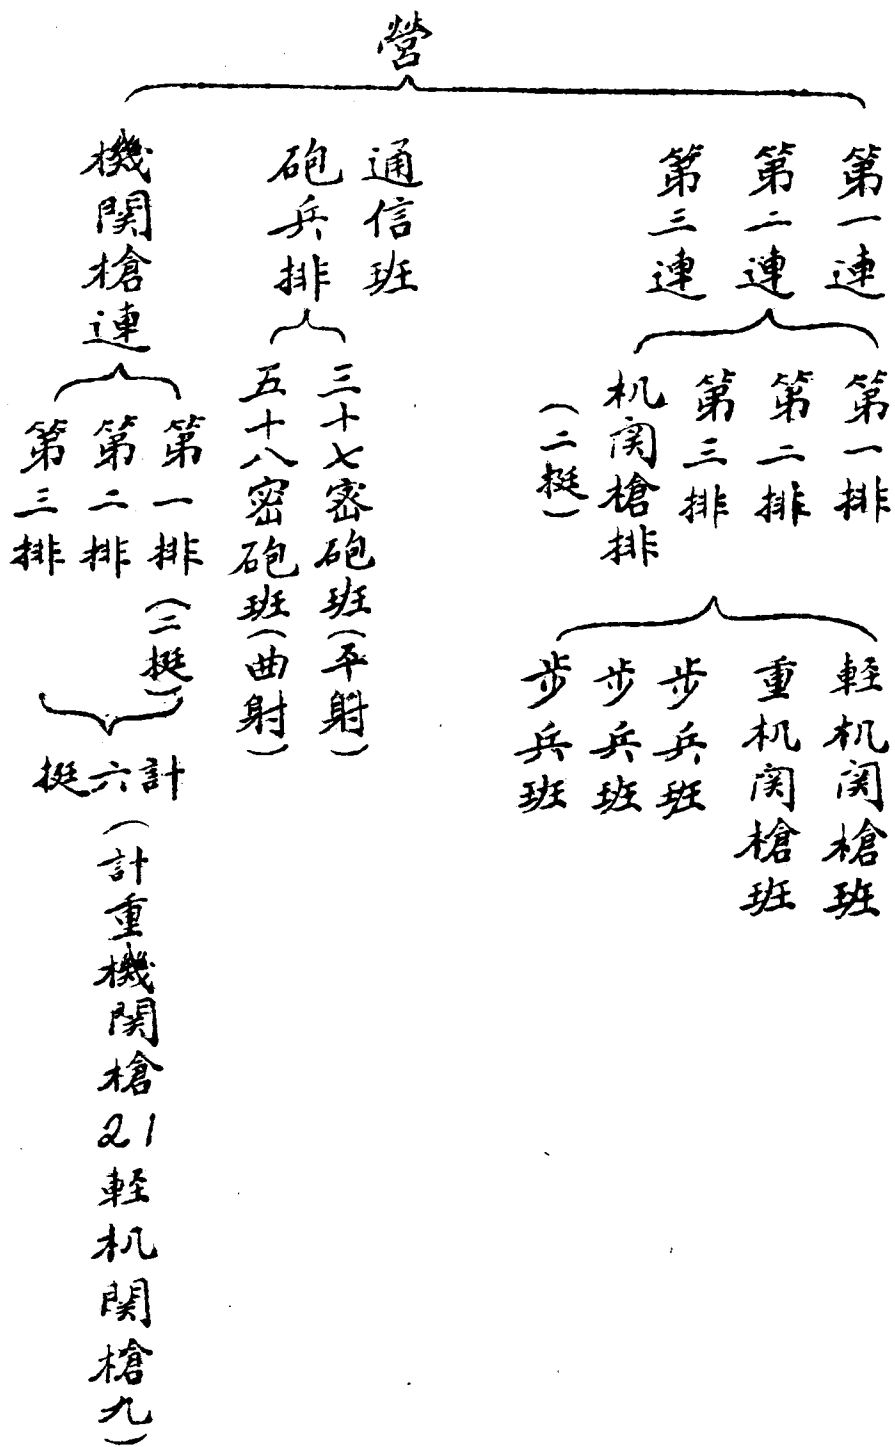 營
第一連
第二連
第三連
第一排
第二排
第三排
机関槍排
(二挺)
軽机関槍班
重机関槍班
步兵班
步兵班
步兵班
通信班
砲兵排
三十七密砲班(平射)
五十八密砲班(曲射)
機関槍連
第一排(二挺)
第二排
第三排
計六挺
(計重機関槍21軽机関槍九)